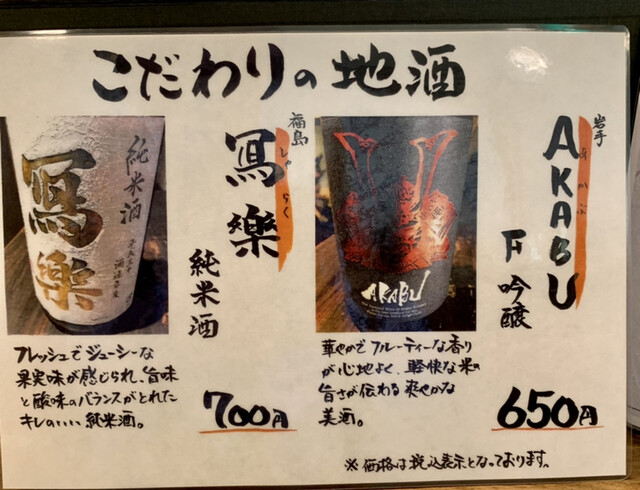 こだわりの地酒
岩手
AKABU
あかぶ
F 吟醸
華やかでフルーティーな香り
が心地よく、軽快な米の
旨さが伝わる爽やかな
美酒。
650円
AKABU
福島
寫樂
しゃらく
純米酒
フレッシュでジューシーな
果実味が感じられ、旨味
と酸味のバランスがとれた
キレのいい純米酒。
700円
純米酒
寫樂
※価格は税込表示となっております。